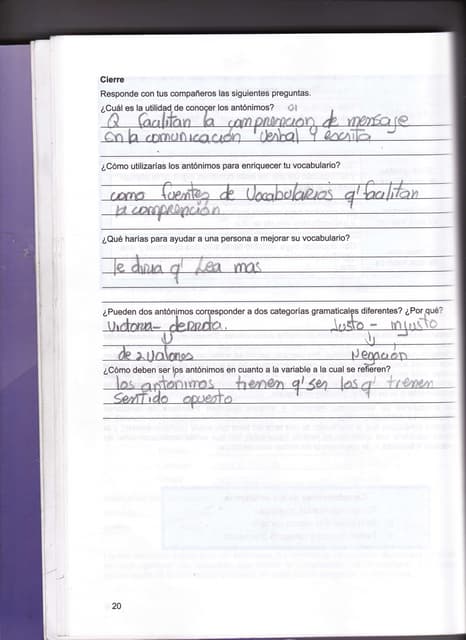 Cierre
Responde con tus compañeros las siguientes preguntas.
¿Cuál es la utilidad de conocer los antónimos?
Q facilitan la comprencion de mensaje
en la comunicación verbal y escrita
¿Cómo utilizarías los antónimos para enriquecer tu vocabulario?
como fuentes de vocabularios q' facilitan
la comprención
¿Qué harías para ayudar a una persona a mejorar su vocabulario?
le diria q' lea mas
¿Pueden dos antónimos corresponder a dos categorías gramaticales diferentes? ¿Por qué?
Victoria - derrota. Justo - injusto
de 2 valores Negación
¿Cómo deben ser los antónimos en cuanto a la variable a la cual se refieren?
los antonimos tienen q' ser los q' tienen
sentido opuesto
20